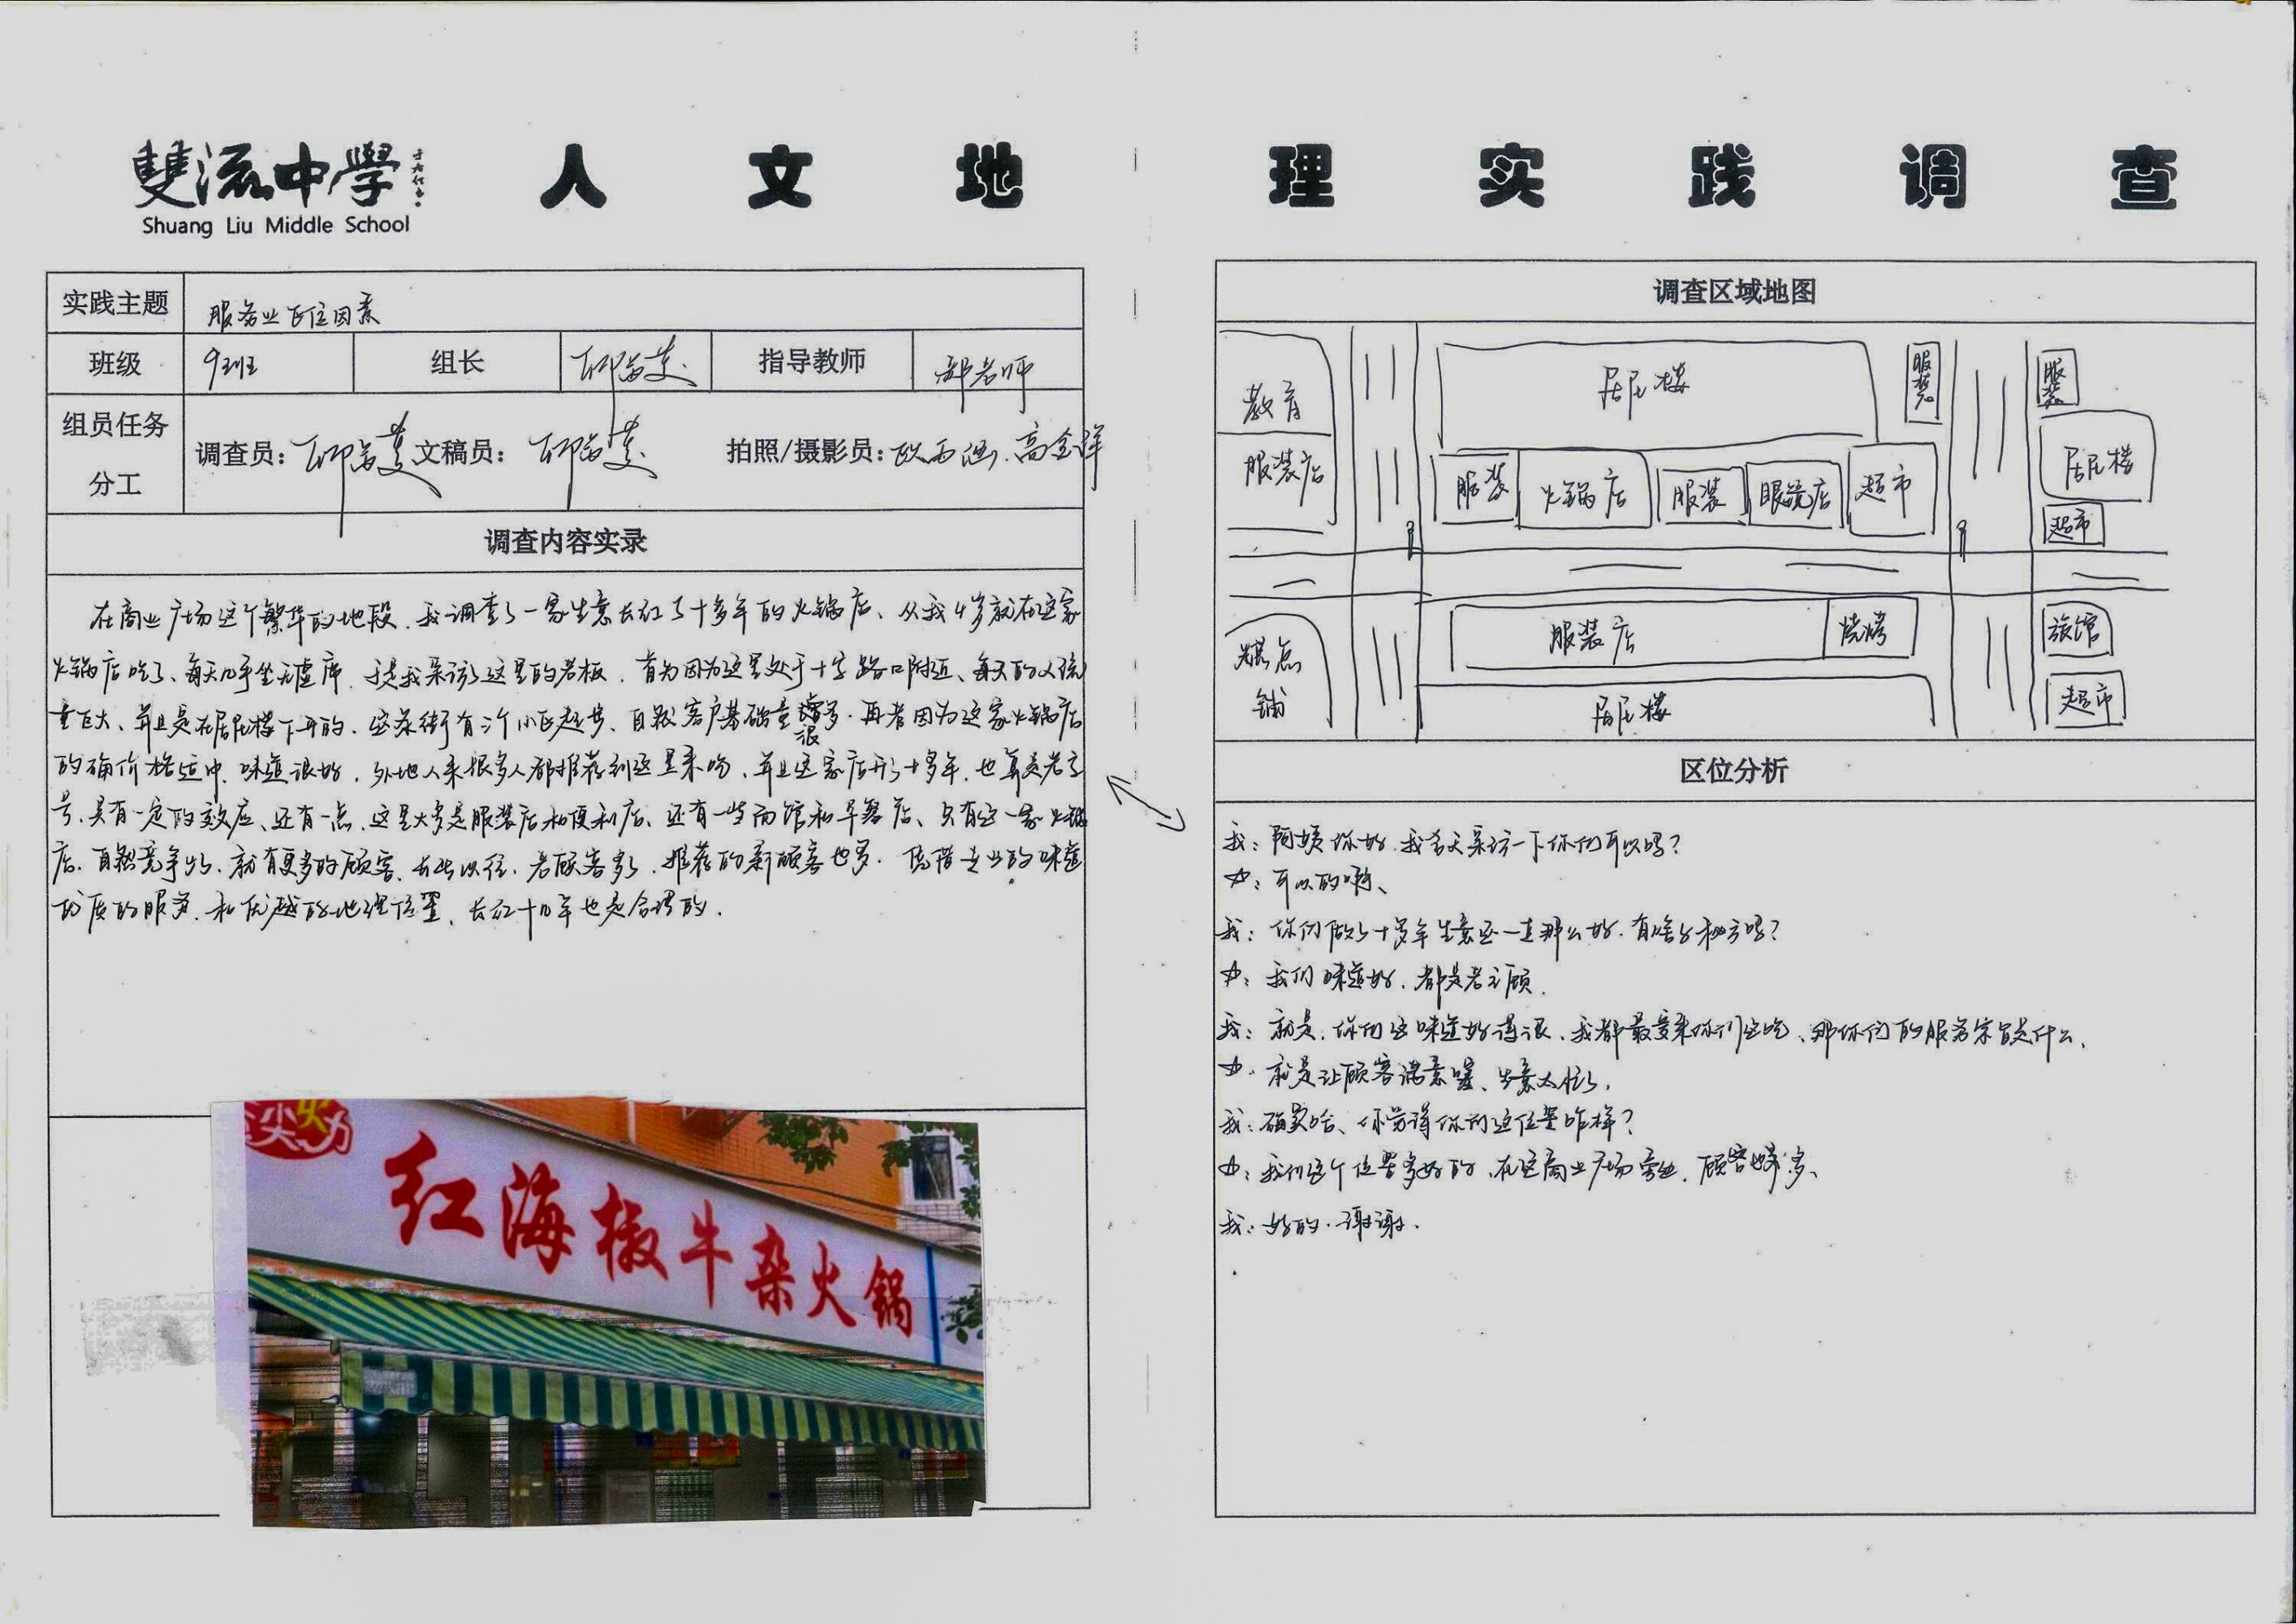 雙流中學
Shuang Liu Middle School
人文地理实践调查
实践主题 服务业区位因素
班级 9班 组长 指导教师 郭老师
组员任务分工 调查员： 文稿员： 拍照/摄影员：
调查内容实录
在商业广场这个繁华的地段，我调查了一家生意长红了十多年的火锅店、从我4岁就在这家
火锅店吃了、每天几乎坐无虚席．于是我采访了这里的老板．首为因为这里处于十字路口附近、每天的人流
量巨大、并且是在居民楼下开的．这条街有三个小区起步、自然客户基础量很多．再者因为这家火锅店
的确价格适中．味道很好，外地人来很多人都推荐到这里来吃、并且这家店开了十多年．也算是老字
号、具有一定的效应、还有一点．这里大多是服装店和便利店、还有一些面馆和早餐店、只有这一家火锅
店．自然竞争少．就有更多的顾客．长此以往．老顾客多了．推荐的新顾客也多．凭借专业的味道
优质的服务．和优越的地理位置．长红十几年也是合理的．
红海椒牛杂火锅
调查区域地图
教育
服装店
居民楼
服装
服装
居民楼
服装
火锅店
服装
眼镜店
超市
超市
糕点铺
服装店
烧烤
居民楼
旅馆
超市
区位分析
我：阿姨你好．我今天采访一下你们可以吗？
：可以的嘛、
我：你们做了十多年生意还一直那么好．有啥子秘方吗？
：我们味道好．都是老主顾．
我：就是．你们这味道好得很、我都最爱来你们这吃、那你们的服务宗旨是什么．
．就是让顾客满意噻、生意太忙了．
我：确实哈、你觉得你们这位置咋样？
：我们这个位置多好的．在这商业广场旁边．顾客也多、
我：好的．谢谢．